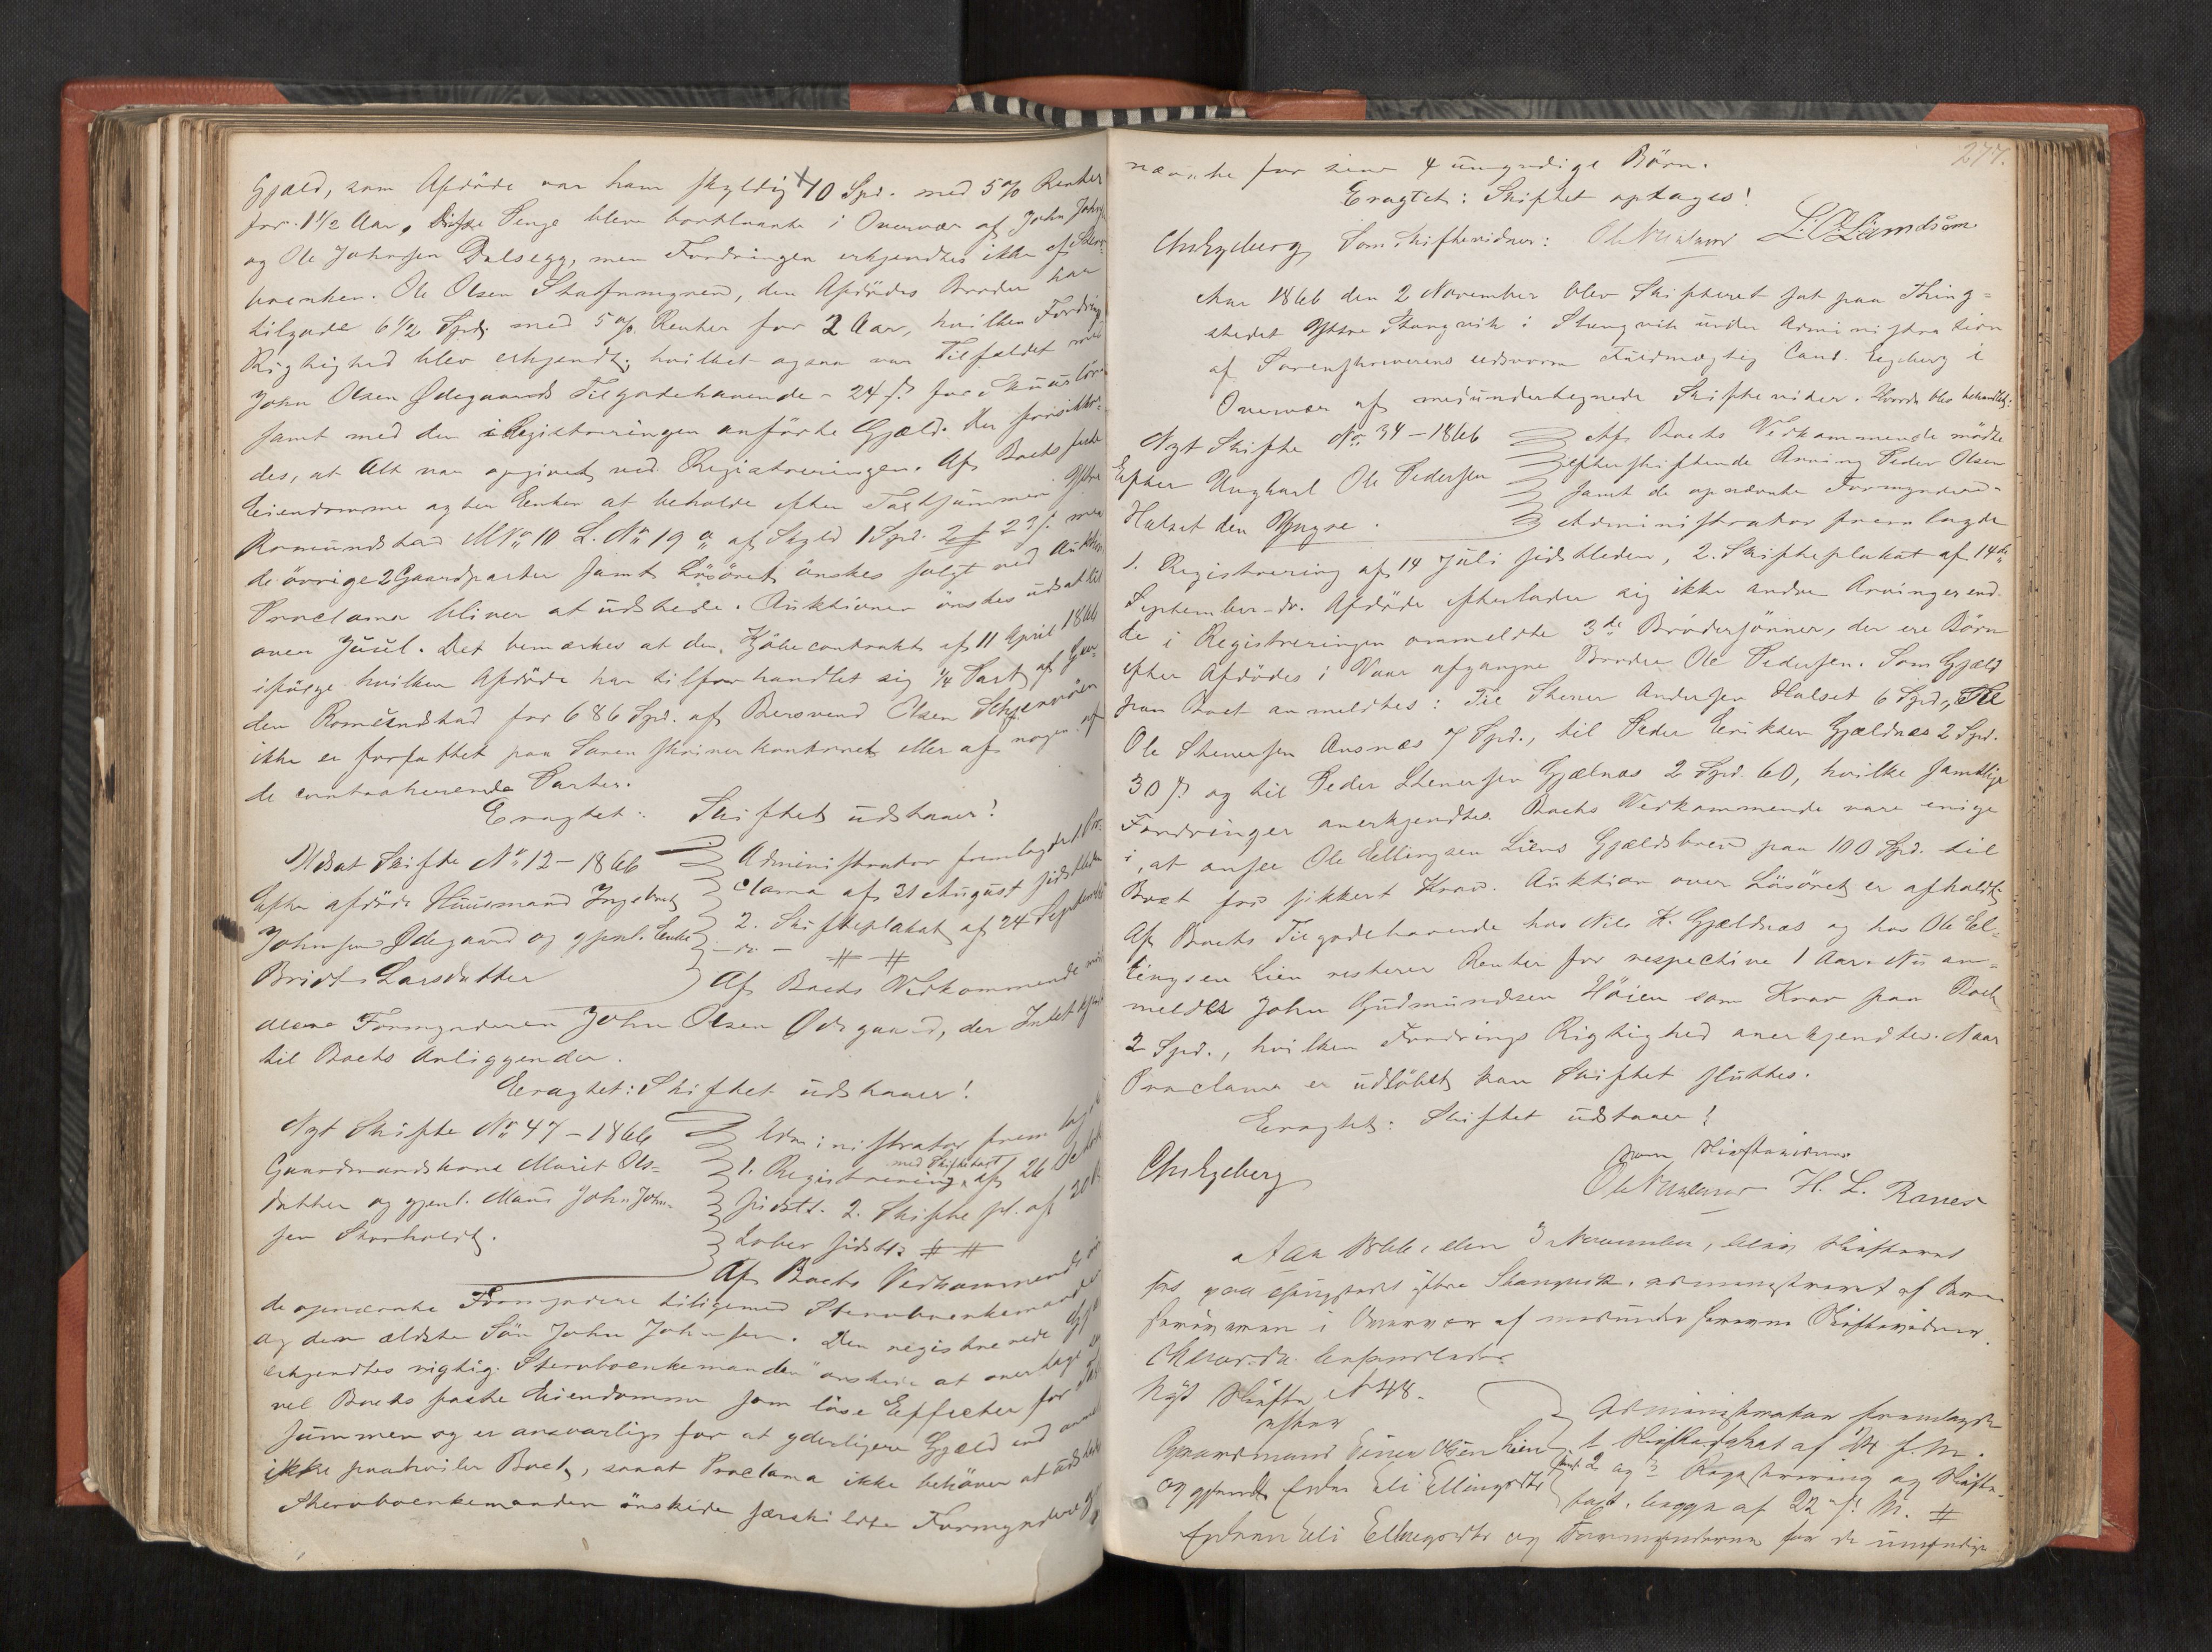 Gjæld, som Afdöde var ham skyldig 10 Spd. med 5% Renter
for 1½ Aar. Disse Penge bleve bortlaante i Overvær af John Johns
og Ole Johnsen Dalsegg, men Fordringen erkjendtes ikke af Sterv-
boenken. Ole Olsen, den Afdödes Broder har
tilgode 6½ Spd. med 5% Renter for 2 Aar, hvilken Fordrings
Rigtighed blev erkjendt; hvilket ogsaa var Tilfældet med
John Olsen Ødegaards Tilgodehavende - 24 ß for
samt med den i Registreringen anförte Gjæld. Der forsikkre-
des, at Alt var opgivet ved Registreringen. Af Boets faste
Eiendomme agter Enken at beholde efter Taxtsummen Ytre
Romundstad M No 10 L. No 19 a af Skyld 1 Spd. 2 ₰ 23 ß med
de övrige 2 Gaardparter samt Lösöret önskes solgt ved Auktion
Proclama bliver at udstede. Auktionen önskes udsat til
over Juul. Det bemærkes at den Kjöbecontrakt af 11 April 1866
ifölge hvilken Afdöde har tilforhandlet sig ¼ Part af Gaar-
den Romundstad for 686 Spd. af Bersvend Olsen
ikke er forfattet paa Sorenskriverkontoret eller af nogen af
de contraherende Parter.
Eragtet: Skiftet udstaaer!
Udsat Skifte No 13 - 1866
Efter afdöde Huusmand Ingebrigt
Johnsen Ødegaard og gjenl. Enke
Bridt Larsdatter
Administrator fremlagde 1. Pro-
clama af 31 August sidstleden
2. Skifteplakat af 24 September
- d. - # #
Af Boets Vedkommende mödte
alene Formynderen John Olsen Ødegaard, der Intet
til Boets Anliggender.
Eragtet: Skiftet udstaaer!
Nyt Skifte No 47 - 1866
Gaardmandskone Marit Ols-
datter og gjenl. Mand John John-
sen Storholdt.
Administrator fremlagde
1. Registrering med Skiftetaxt af 26 October
sidstl. 2. Skiftepl. af 20 Oc-
tober sidstl. # #
Af Boets Vedkommende mödte
de opnævnte Formyndere tilligemed Stervboenkemanden
og den ældste Sön John Johnsen. Den registrerede Gjæld
erkjendtes rigtig. Stervboenkemanden önskede at overtage saa-
vel Boets faste Eiendomme som löse Effecter for Taxt-
summen og er ansvarlig for at yderligere Gjæld end anmeldt
ikke paahviler Boet, saaat Proclama ikke behöver at udstedes
Stervboenkemanden önskede særskildte Formyndere
277.
nævnte for sine 4 umyndige Börn.
Eragtet: Skiftet optages!
Chr Egeberg Som Skiftevidner: L. O. Landsem
Aar 1866 den 2 November blev Skifteret sat paa Thing-
stedet Yttre Stangvik i Stangvik under Administration
af Sorenskriverens edsvorne Fuldmægtig Cand. Egeberg i
Overvær af medundertegnede Skiftevidner. Hvorda blev behandlet:
Nyt Skifte No 34 - 1866
Efter Ungkarl Ole Pedersen
Halset den Yngre.
Af Boets Vedkommende mödte
efterskiftende Arving Peder Olsen
samt de opnævnte Formyndere.
Administrator fremlagde
1. Registrering af 14 Juli sidstleden, 2. Skifteplakat af 14de
September - d. Afdöde efterlader sig ikke andre Arvinger end
de i Registreringen ommeldte 3de Brödersönner, der ere Börn
efter Afdödes i Vaar afgangne Broder Ole Pedersen. Som Gjæld
paa Boet anmeldtes: Til Stener Andersen Halset 6 Spd., Til
Ole Stenersen Aasnæs 7 Spd., til Peder Eriksen Gjældnæs 2 Spd.
30 ß og til Peder Stenersen Gjælnæs 2 Spd. 60, hvilke samtlige
Fordringer anerkjendtes. Boets Vedkommende vare enige
i, at ansee Ole Ellingsen Liens Gjældsbrev paa 100 Spd. til
Boet for sikkert Krav. Auktion over Lösöret er afholdt.
Af Boets Tilgodehavende hos Nils K. Gjældnæs og hos Ole El-
lingsen Lien resterer Renter for respective 1 Aar. Nu an-
meldes John Gudmundsen Höien som Krav paa Boet
2 Spd., hvilken Fordrings Rigtighed anerkjendtes. Naar
Proclama er udlöbet kan Skiftet sluttes.
Eragtet: Skiftet udstaaer!
som Skiftevidner
Chr Egeberg H. L. Ranes
Aar 1866, den 3 November, blev Skifteret
sat paa Thingstedet ytre Stangvik, administreret af Soren-
skriveren i Overvær af medunderskrevne Skiftevidner.
Hvorda behandledes
Nyt Skifte No 48.
efter
Gaardmand Einer Olsen Lien
og gjenl. Enke Eli Ellingsdtr
Administrator fremlagde
1. Skifteplakat af f. M.
samt 2 og 3 Registrering og Skifte-
taxt, begge af 22 f. M. #
Enken Eli Ellingsdtr og Formynderne for de umyndige